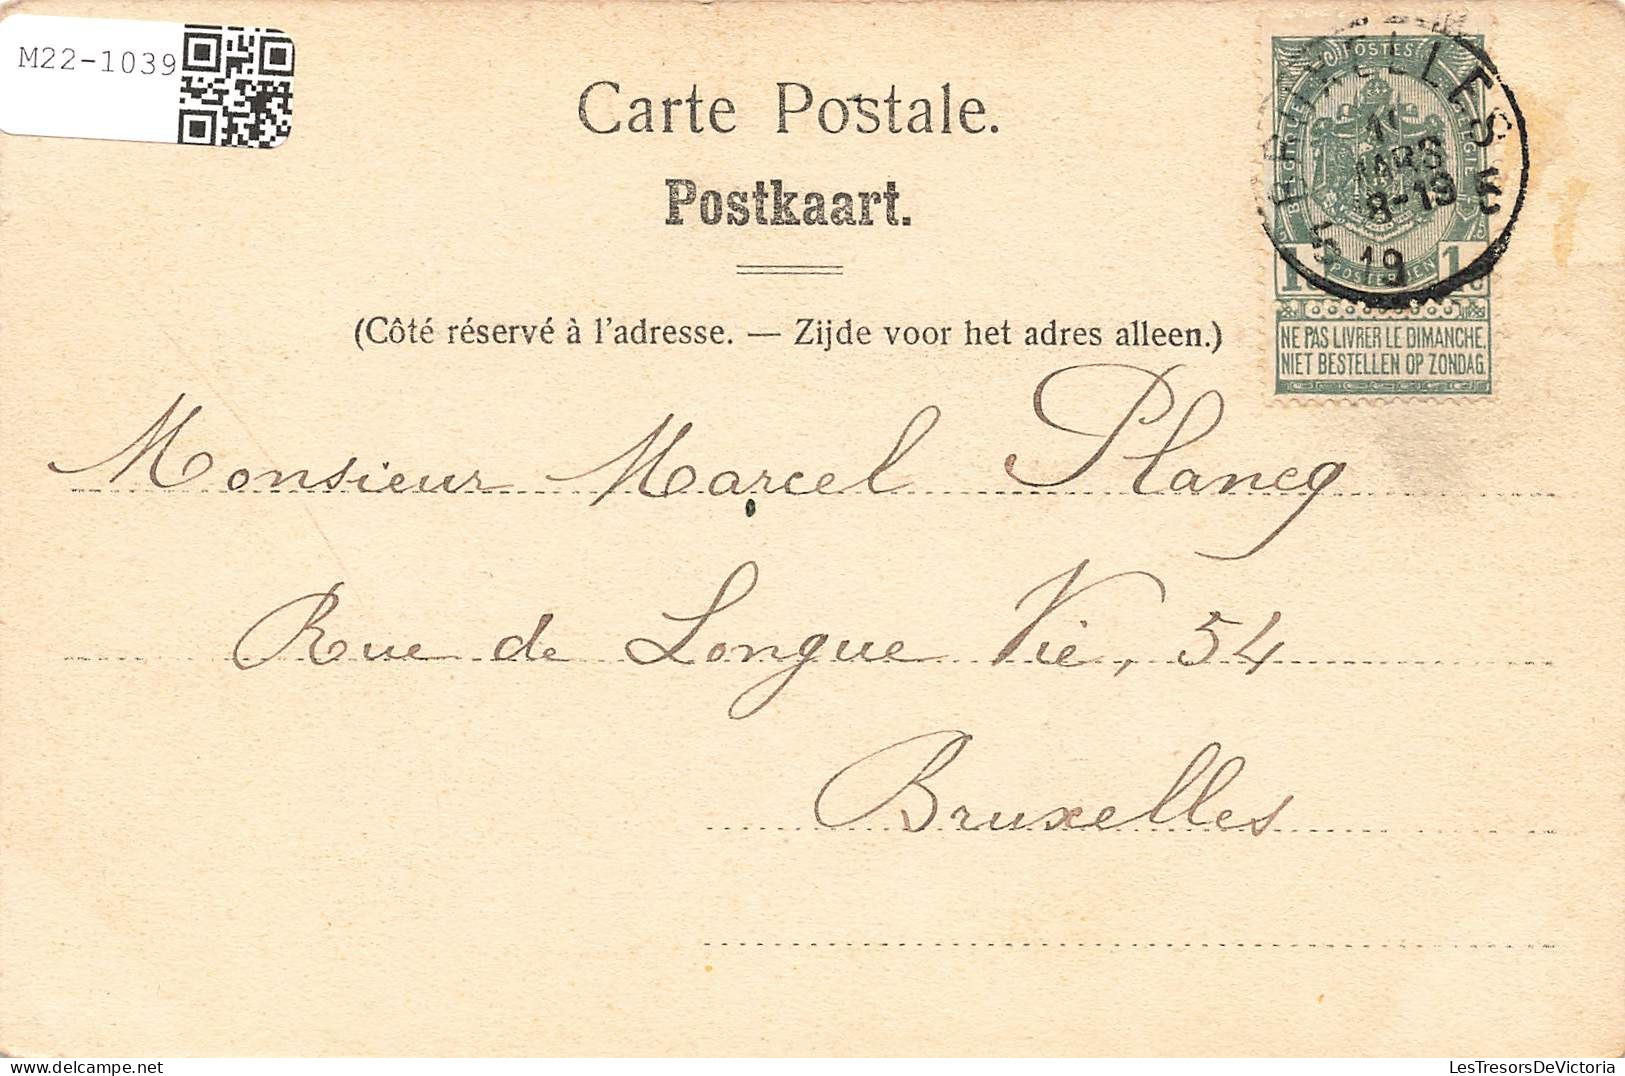 M22-1039
Carte Postale.
Postkaart.
(Côté réservé à l'adresse. — Zijde voor het adres alleen.)
POSTES
BRUXELLES
MARS
8-19
19
POSTERIJEN
1 1
NE PAS LIVRER LE DIMANCHE,
NIET BESTELLEN OP ZONDAG.
Monsieur Marcel Plancq
Rue de Longue Vie, 54
Bruxelles
LesTresorsDeVictoria